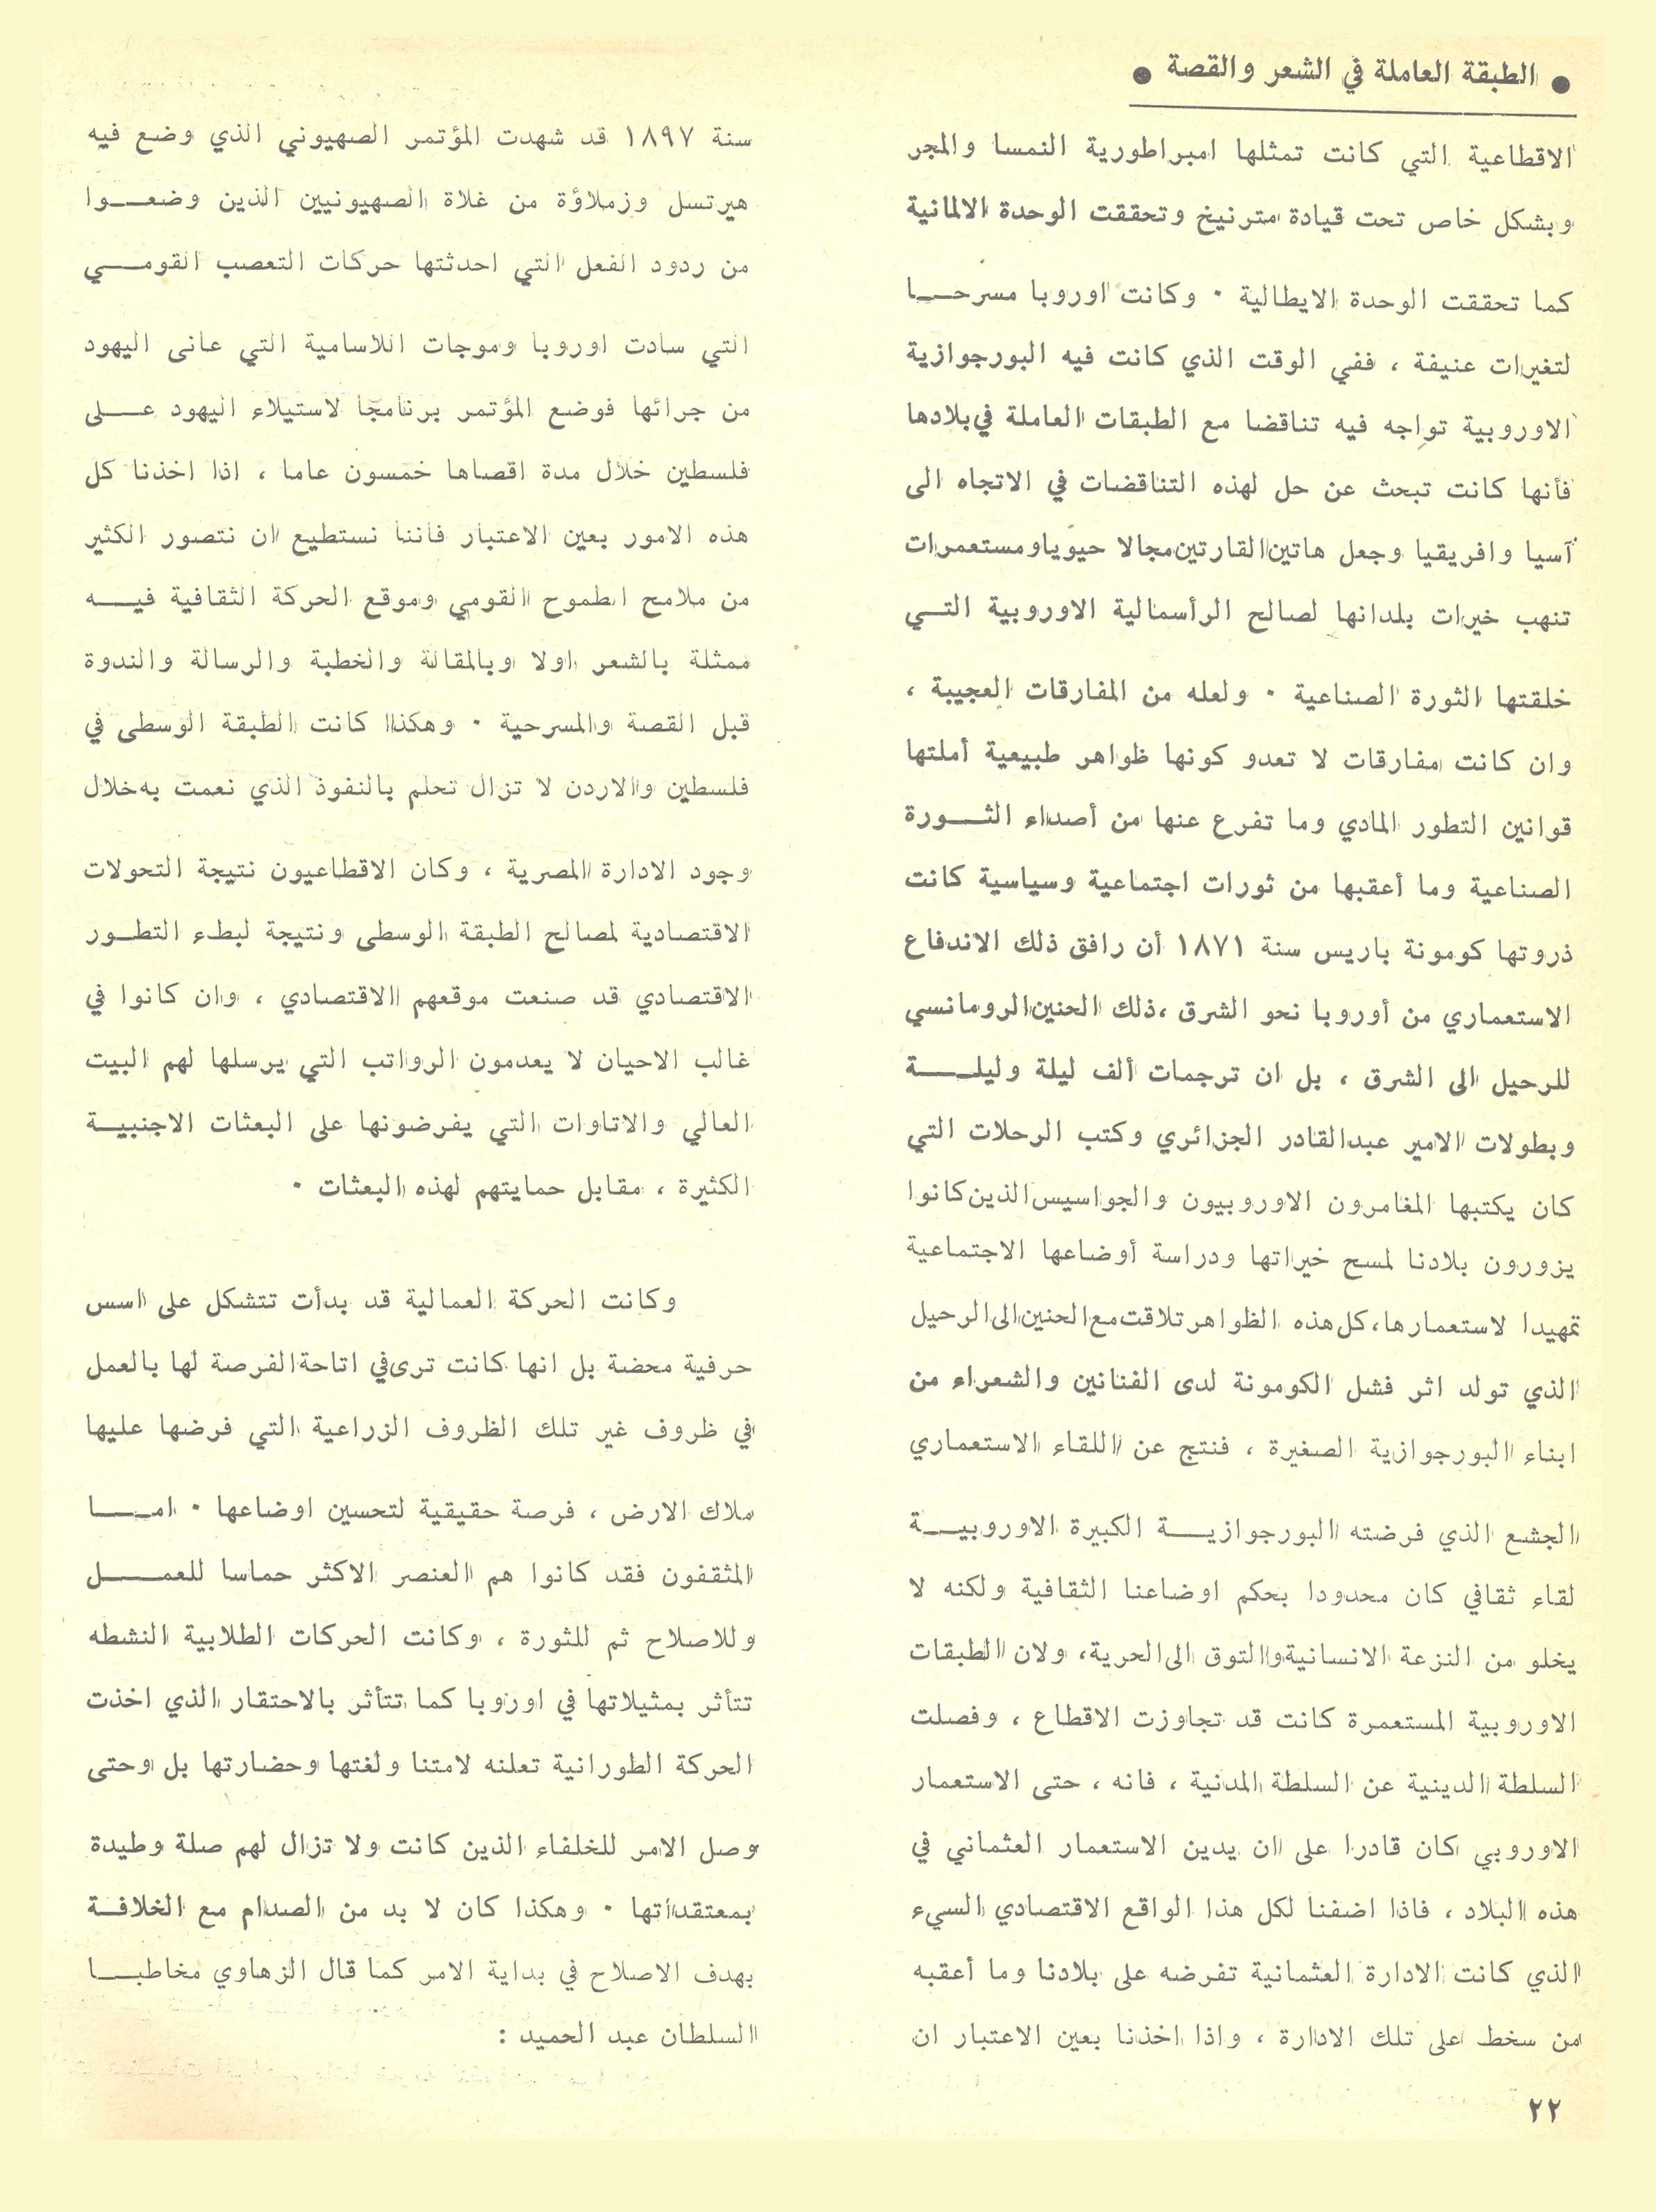 ● الطبقة العاملة في الشعر والقصة ●
الاقطاعية التي كانت تمثلها امبراطورية النمسا والمجر
وبشكل خاص تحت قيادة مترنيخ وتحققت الوحدة الالمانية
كما تحققت الوحدة الايطالية ٠ وكانت اوروبا مسرحـــا
لتغيرات عنيفة ، ففي الوقت الذي كانت فيه البورجوازية
الاوروبية تواجه فيه تناقضا مع الطبقات العاملة في بلادها
فأنها كانت تبحث عن حل لهذه التناقضات في الاتجاه الى
آسيا وافريقيا وجعل هاتين القارتين مجالا حيويا ومستعمرات
تنهب خيرات بلدانها لصالح الرأسمالية الاوروبية التــي
خلقتها الثورة الصناعية ٠ ولعله من المفارقات العجيبة ،
وان كانت مفارقات لا تعدو كونها ظواهر طبيعية أملتها
قوانين التطور المادي وما تفرع عنها من أصداء الثـــورة
الصناعية وما أعقبها من ثورات اجتماعية وسياسية كانت
ذروتها كومونة باريس سنة ١٨٧١ أن رافق ذلك الاندفاع
الاستعماري من أوروبا نحو الشرق ،ذلك الحنين الرومانسي
للرحيل الى الشرق ، بل ان ترجمات ألف ليلة وليلـــــة
وبطولات الامير عبدالقادر الجزائري وكتب الرحلات التي
كان يكتبها المغامرون الاوروبيون والجواسيس الذين كانوا
يزورون بلادنا لمسح خيراتها ودراسة أوضاعها الاجتماعية
تمهيدا لاستعمارها، كل هذه الظواهر تلاقت مع الحنين الى الرحيل
الذي تولد اثر فشل الكومونة لدى الفنانين والشعراء من
ابناء البورجوازية الصغيرة ، فنتج عن اللقاء الاستعماري
الجشع الذي فرضته البورجوازيـــة الكبيرة الاوروبيـــة
لقاء ثقافي كان محدودا بحكم اوضاعنا الثقافية ولكنه لا
يخلو من النزعة الانسانية والتوق الى الحرية، ولان الطبقات
الاوروبية المستعمرة كانت قد تجاوزت الاقطاع ، وفصلت
السلطة الدينية عن السلطة المدنية ، فانه ، حتى الاستعمار
الاوروبي كان قادرا على ان يدين الاستعمار العثماني في
هذه البلاد ، فاذا اضفنا لكل هذا الواقع الاقتصادي السيء
الذي كانت الادارة العثمانية تفرضه على بلادنا وما أعقبه
من سخط على تلك الادارة ، واذا اخذنا بعين الاعتبار ان
سنة ١٨٩٧ قد شهدت المؤتمر الصهيوني الذي وضع فيه
هيرتسل وزملاؤة من غلاة الصهيونيين الذين وضعـــوا
من ردود الفعل التي احدثتها حركات التعصب القومـــي
التي سادت اوروبا وموجات اللاسامية التي عانى اليهود
من جرائها فوضع المؤتمر برنامجا لاستيلاء اليهود عـــلى
فلسطين خلال مدة اقصاها خمسون عاما ، اذا اخذنا كل
هذه الامور بعين الاعتبار فاننا نستطيع ان نتصور الكثير
من ملامح الطموح القومي وموقع الحركة الثقافية فيـــه
ممثلة بالشعر اولا وبالمقالة والخطبة والرسالة والندوة
قبل القصة والمسرحية ٠ وهكذا كانت الطبقة الوسطى في
فلسطين والاردن لا تزال تحلم بالنفوذ الذي نعمت به خلال
وجود الادارة المصرية ، وكان الاقطاعيون نتيجة التحولات
الاقتصادية لمصالح الطبقة الوسطى ونتيجة لبطء التطــور
الاقتصادي قد صنعت موقعهم الاقتصادي ، وان كانوا في
غالب الاحيان لا يعدمون الرواتب التي يرسلها لهم البيت
العالي والاتاوات التي يفرضونها على البعثات الاجنبيــة
الكثيرة ، مقابل حمايتهم لهذه البعثات ٠
وكانت الحركة العمالية قد بدأت تتشكل على اسس
حرفية محضة بل انها كانت ترى في اتاحة الفرصة لها بالعمل
في ظروف غير تلك الظروف الزراعية التي فرضها عليها
ملاك الارض ، فرصة حقيقية لتحسين اوضاعها ٠ امـــا
المثقفون فقد كانوا هم العنصر الاكثر حماسا للعمـــل
وللاصلاح ثم للثورة ، وكانت الحركات الطلابية النشطه
تتأثر بمثيلاتها في اوروبا كما تتأثر بالاحتقار الذي اخذت
الحركة الطورانية تعلنه لامتنا ولغتها وحضارتها بل وحتى
وصل الامر للخلفاء الذين كانت ولا تزال لهم صلة وطيدة
بمعتقداتها ٠ وهكذا كان لا بد من الصدام مع الخلافــة
بهدف الاصلاح في بداية الامر كما قال الزهاوي مخاطبـــا
السلطان عبد الحميد :
٢٢